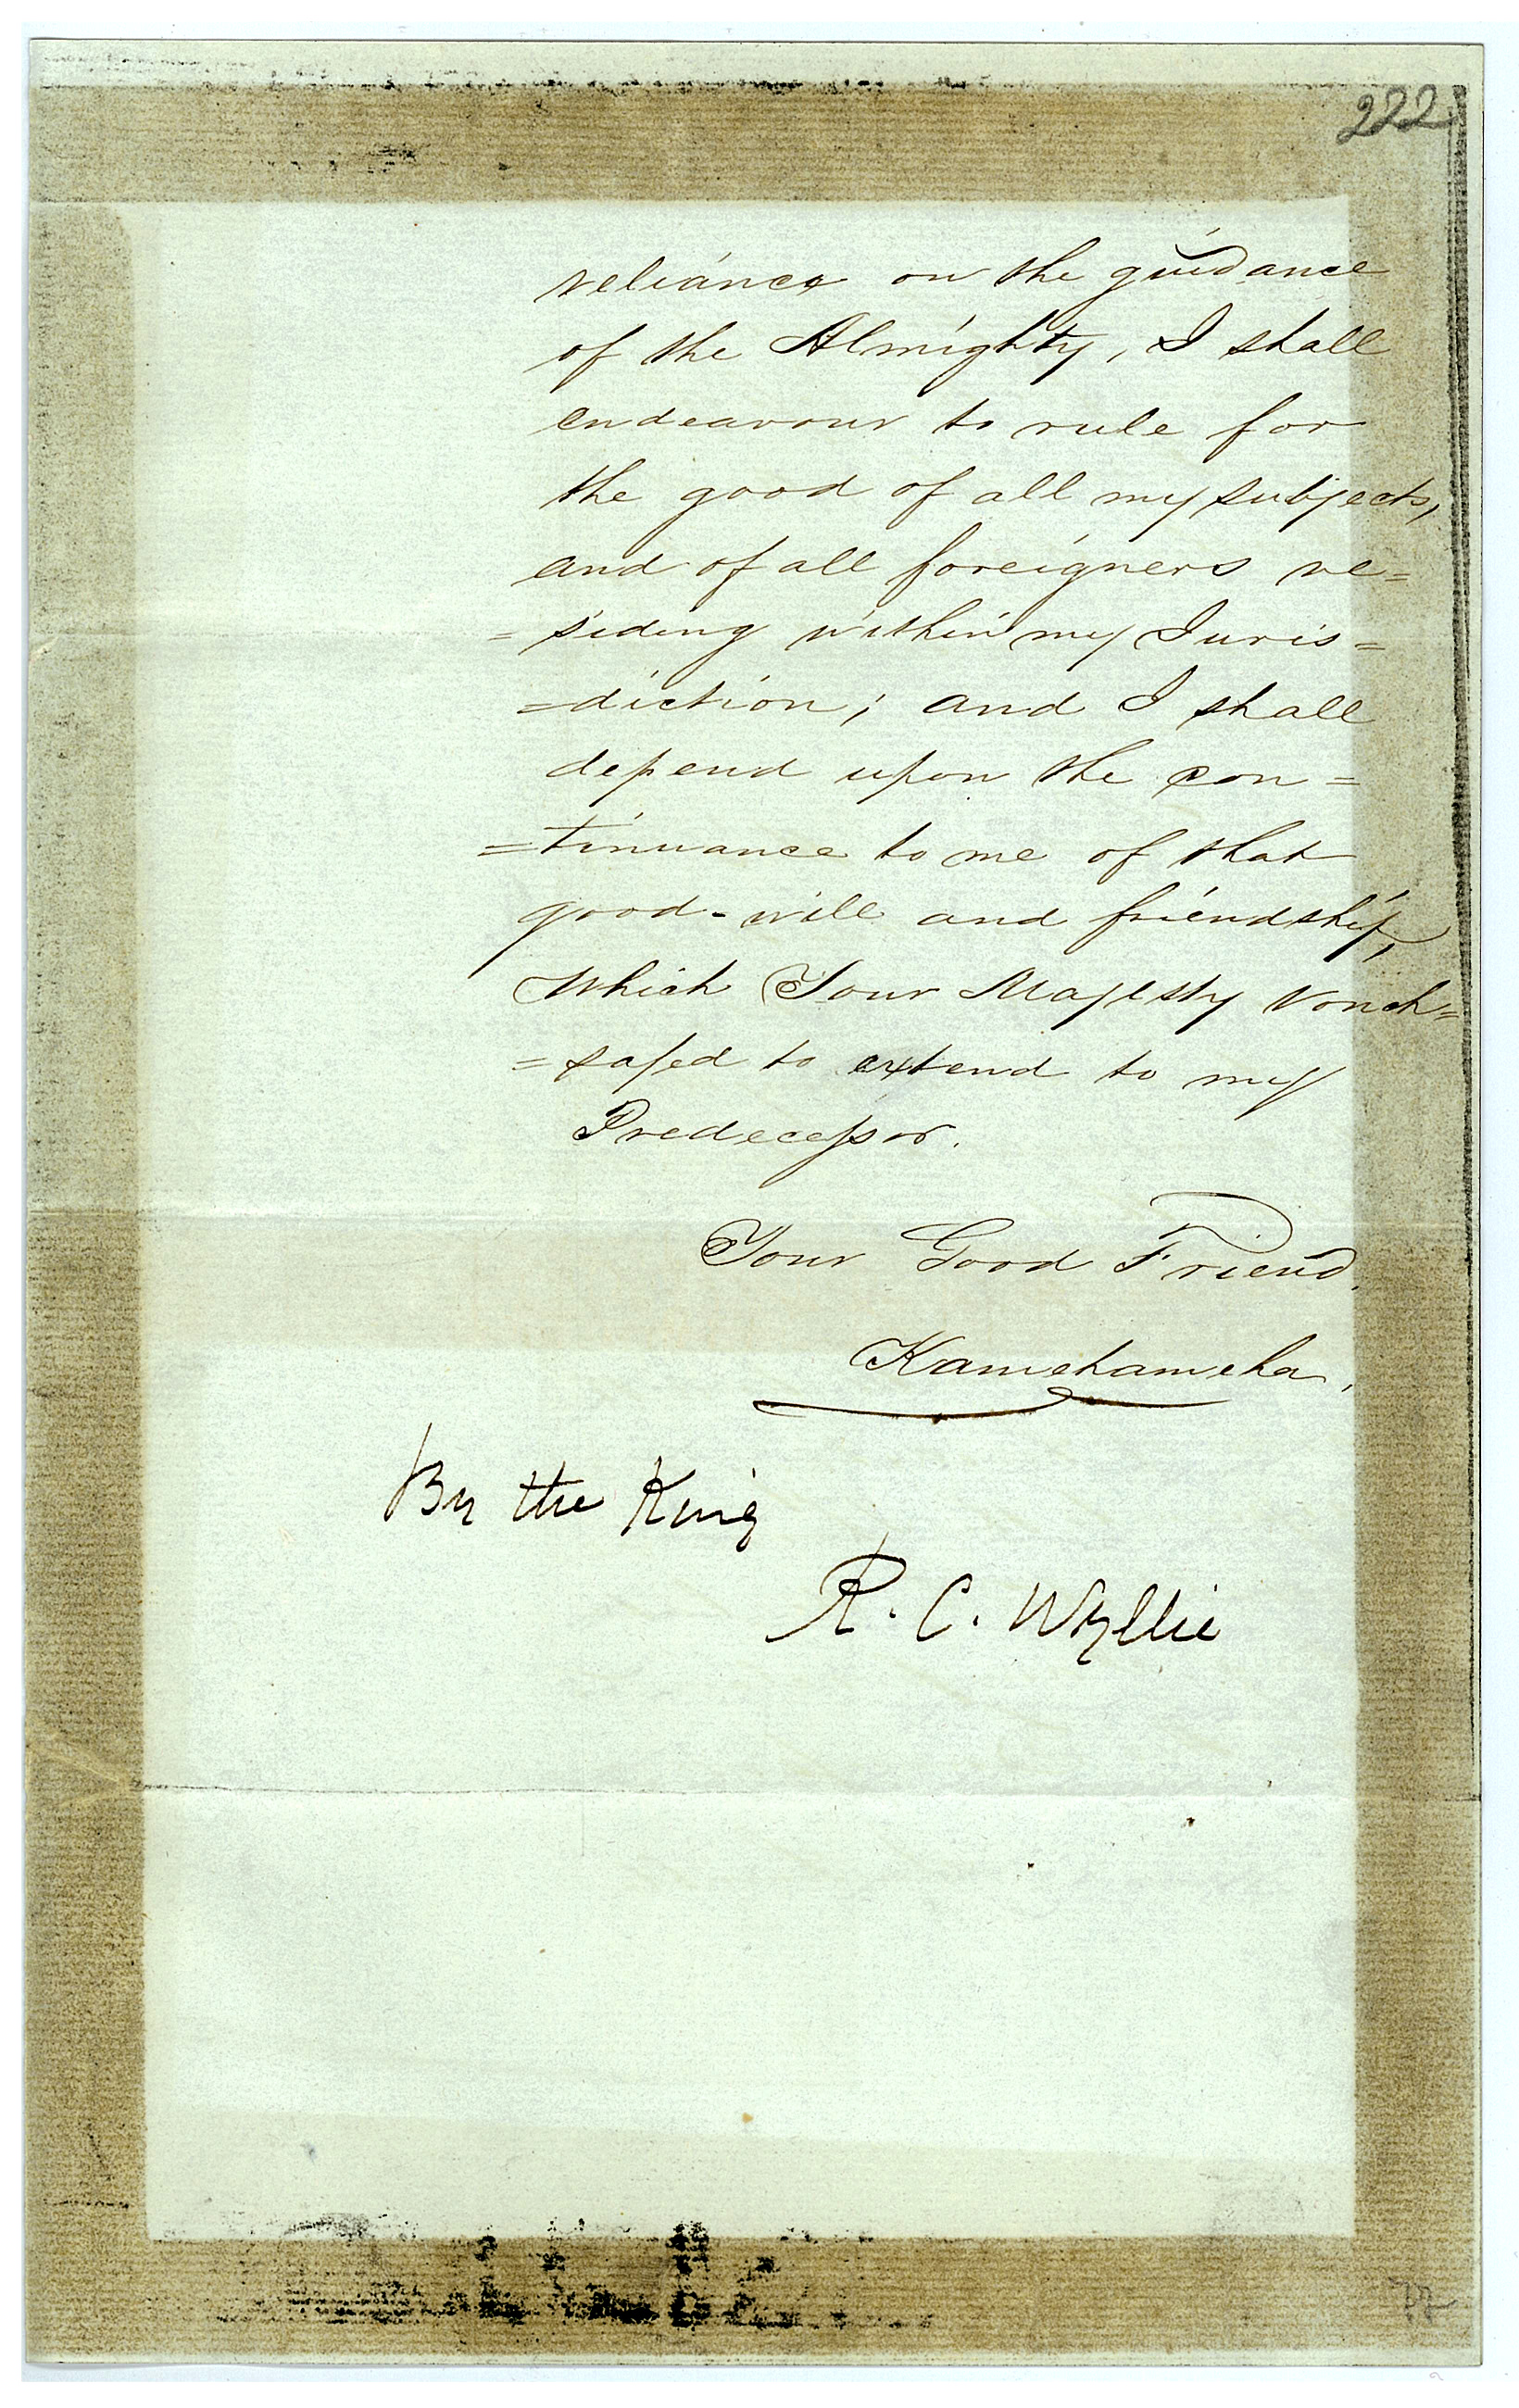 222
reliance on the guidance
of the Almighty, I shall
endeavour to rule for
the good of all my subjects,
and of all foreigners re=
=siding within my Juris=
=diction; and I shall
depend upon the con=
=tinuance to me of that
good-will and friendship,
which Your Majesty vouch=
=safed to extend to my
Predecessor.
Your Good Friend,
Kamehameha,
By the King
R. C. Wyllie